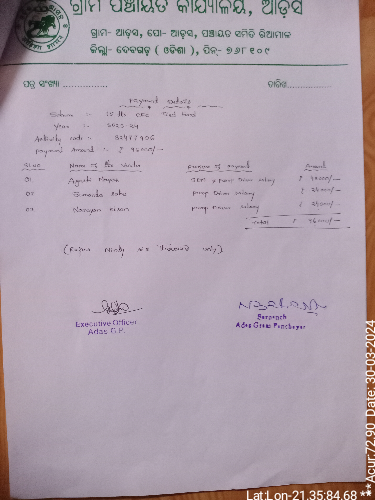 ଗ୍ରାମ ପଞ୍ଚାୟତ କାର୍ଯ୍ୟାଳୟ, ଆଡ଼ସ
ଗ୍ରାମ- ଆଡ଼ସ, ପୋ- ଆଡ଼ସ, ପଞ୍ଚାୟତ ସମିତି ରିଆମାଳ
ଜିଲ୍ଲା- ଦେବଗଡ଼ ( ଓଡିଶା ), ପିନ୍- ୭୬୮୧୦୯
ପତ୍ର ସଂଖ୍ୟା ................ ତାରିଖ................
Payment details
Scheme :- 15 th CFC Tied Fund
Year :- 2023-24
Activity code :- 82477906
Payment Amount :- ₹ 96000/-
Sl no Name of the Purpose of payment Amount
01 pump salary
02 pump salary ₹ 24000/-
03 pump salary ₹ 24000/-
Total ₹ 96000/-
(Rupees Ninety six Thousand only)
Executive Officer
Adas G.P.
Sarpanch
Adas Grama Panchayat
Lat:Lon-21.35:84.68 **Acur:72.90 Date: 30-03-2024